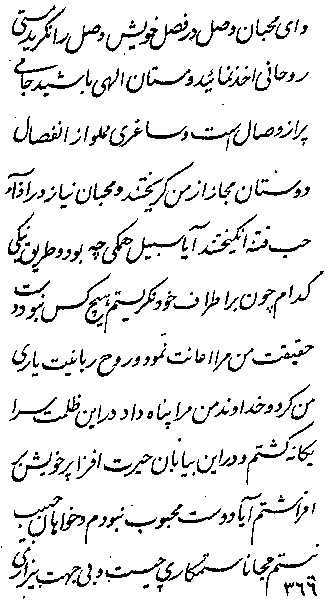 و ای محبان وصل در فصل خویش وصل را نگرید مستی
روحانی اخذ نمائید دوستان الهی باشید جامی
پر از وصال است و ساغری مملو از انفصال
دوستان مجاز از من گریختند و محبان نیاز در اذآء
حب فتنه انگیختند آیا سبیل حکمی چه بود و طریق نیکی
کدام چون بر اطراف خود نگریستم هیچ کس نبود دست
حقیقت من مرا اعانت نمود و روح ربانیت یاری
من کرد و خداوند من مرا پناه داد در این ظلمت سرا
یگانه گشتم و در این بیابان حیرت افزا پر خویش بر
افراشتم آیا دوست محبوب نبودم و خواهان حبیب
نیستم مجانا ستمکاری چیست و بی جهت بیزاری
۳۶۹